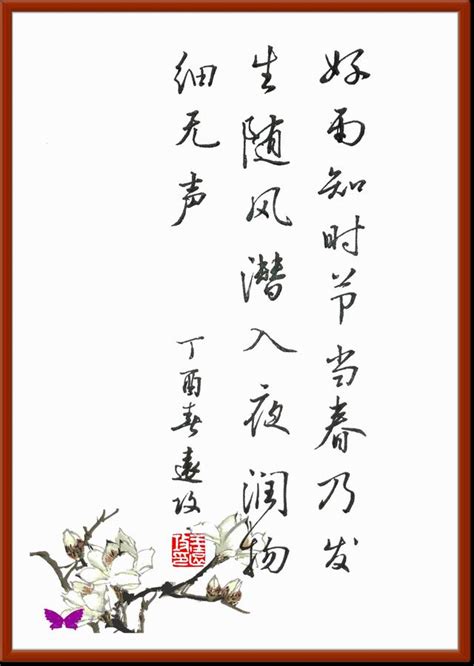 好雨知时节当春乃发
生随风潜入夜润物
细无声
丁酉春远